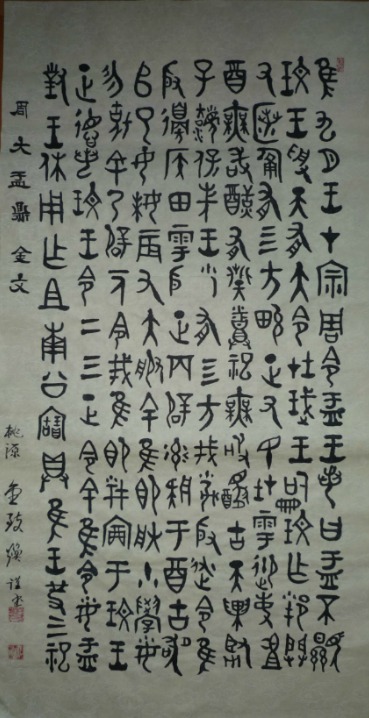 隹九月王才宗周令盂王若曰盂不顯
玟王受天有大令在珷王嗣玟乍邦闢
厥匿匍有四方畯正厥民在雩御事
酉無敢酖有髭烝祀無敢醻古天異臨
子法保先王有四方我聞殷述令隹
殷邊侯田雩殷正百辟率肄于酉古喪
𠂤已女妹辰又大服余隹即朕小學女
勿克余乃辟一人今我隹即井廩于玟王
正德若玟王令二三正今余隹令女盂
對王休用乍且南公寶鼎隹王廿又三祀
周大盂鼎金文
桃源 謹書